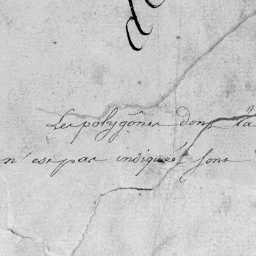 de
Les polygônes dont la
n'est pas indiquée sont